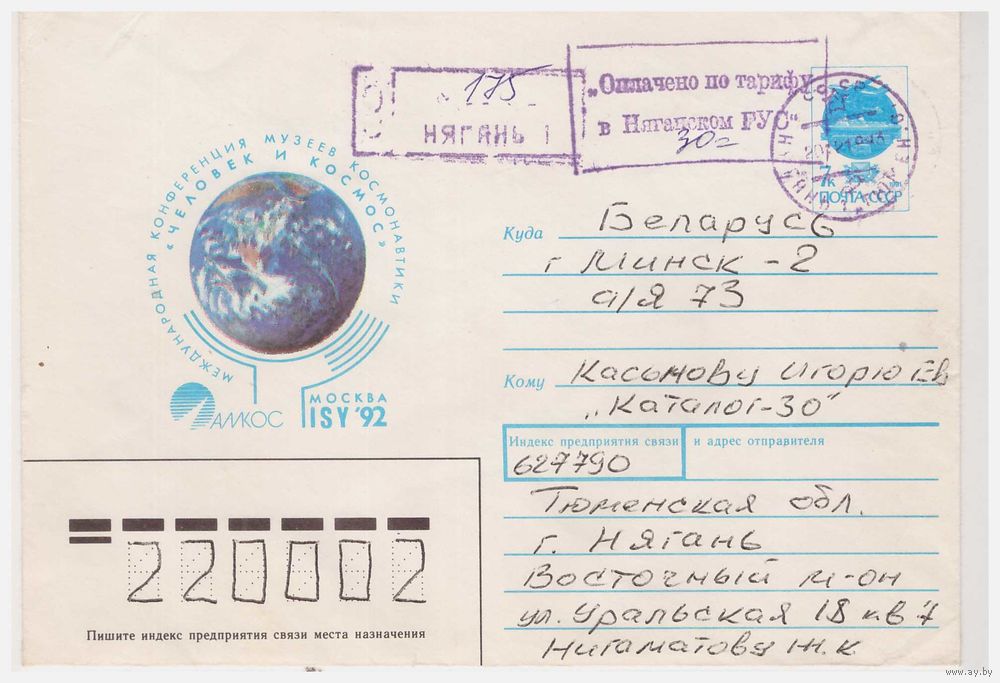 175
НЯГАНЬ 1
„Оплачено по тарифу
в Няганском РУС“
30г
7к
ПОЧТА СССР
МЕЖДУНАРОДНАЯ КОНФЕРЕНЦИЯ МУЗЕЕВ КОСМОНАВТИКИ
«ЧЕЛОВЕК И КОСМОС»
АМКОС
МОСКВА
ISY '92
Куда Беларусь
г Минск - 2
а/я 73
Кому Касымову Игорю Ев
„Каталог-30"
Индекс предприятия связи и адрес отправителя
627790
Тюменская обл.
г. Нягань
Восточный м-он
ул. Уральская 18 кв 7
Нигаматову Ж. К
220002
Пишите индекс предприятия связи места назначения
www.ay.by